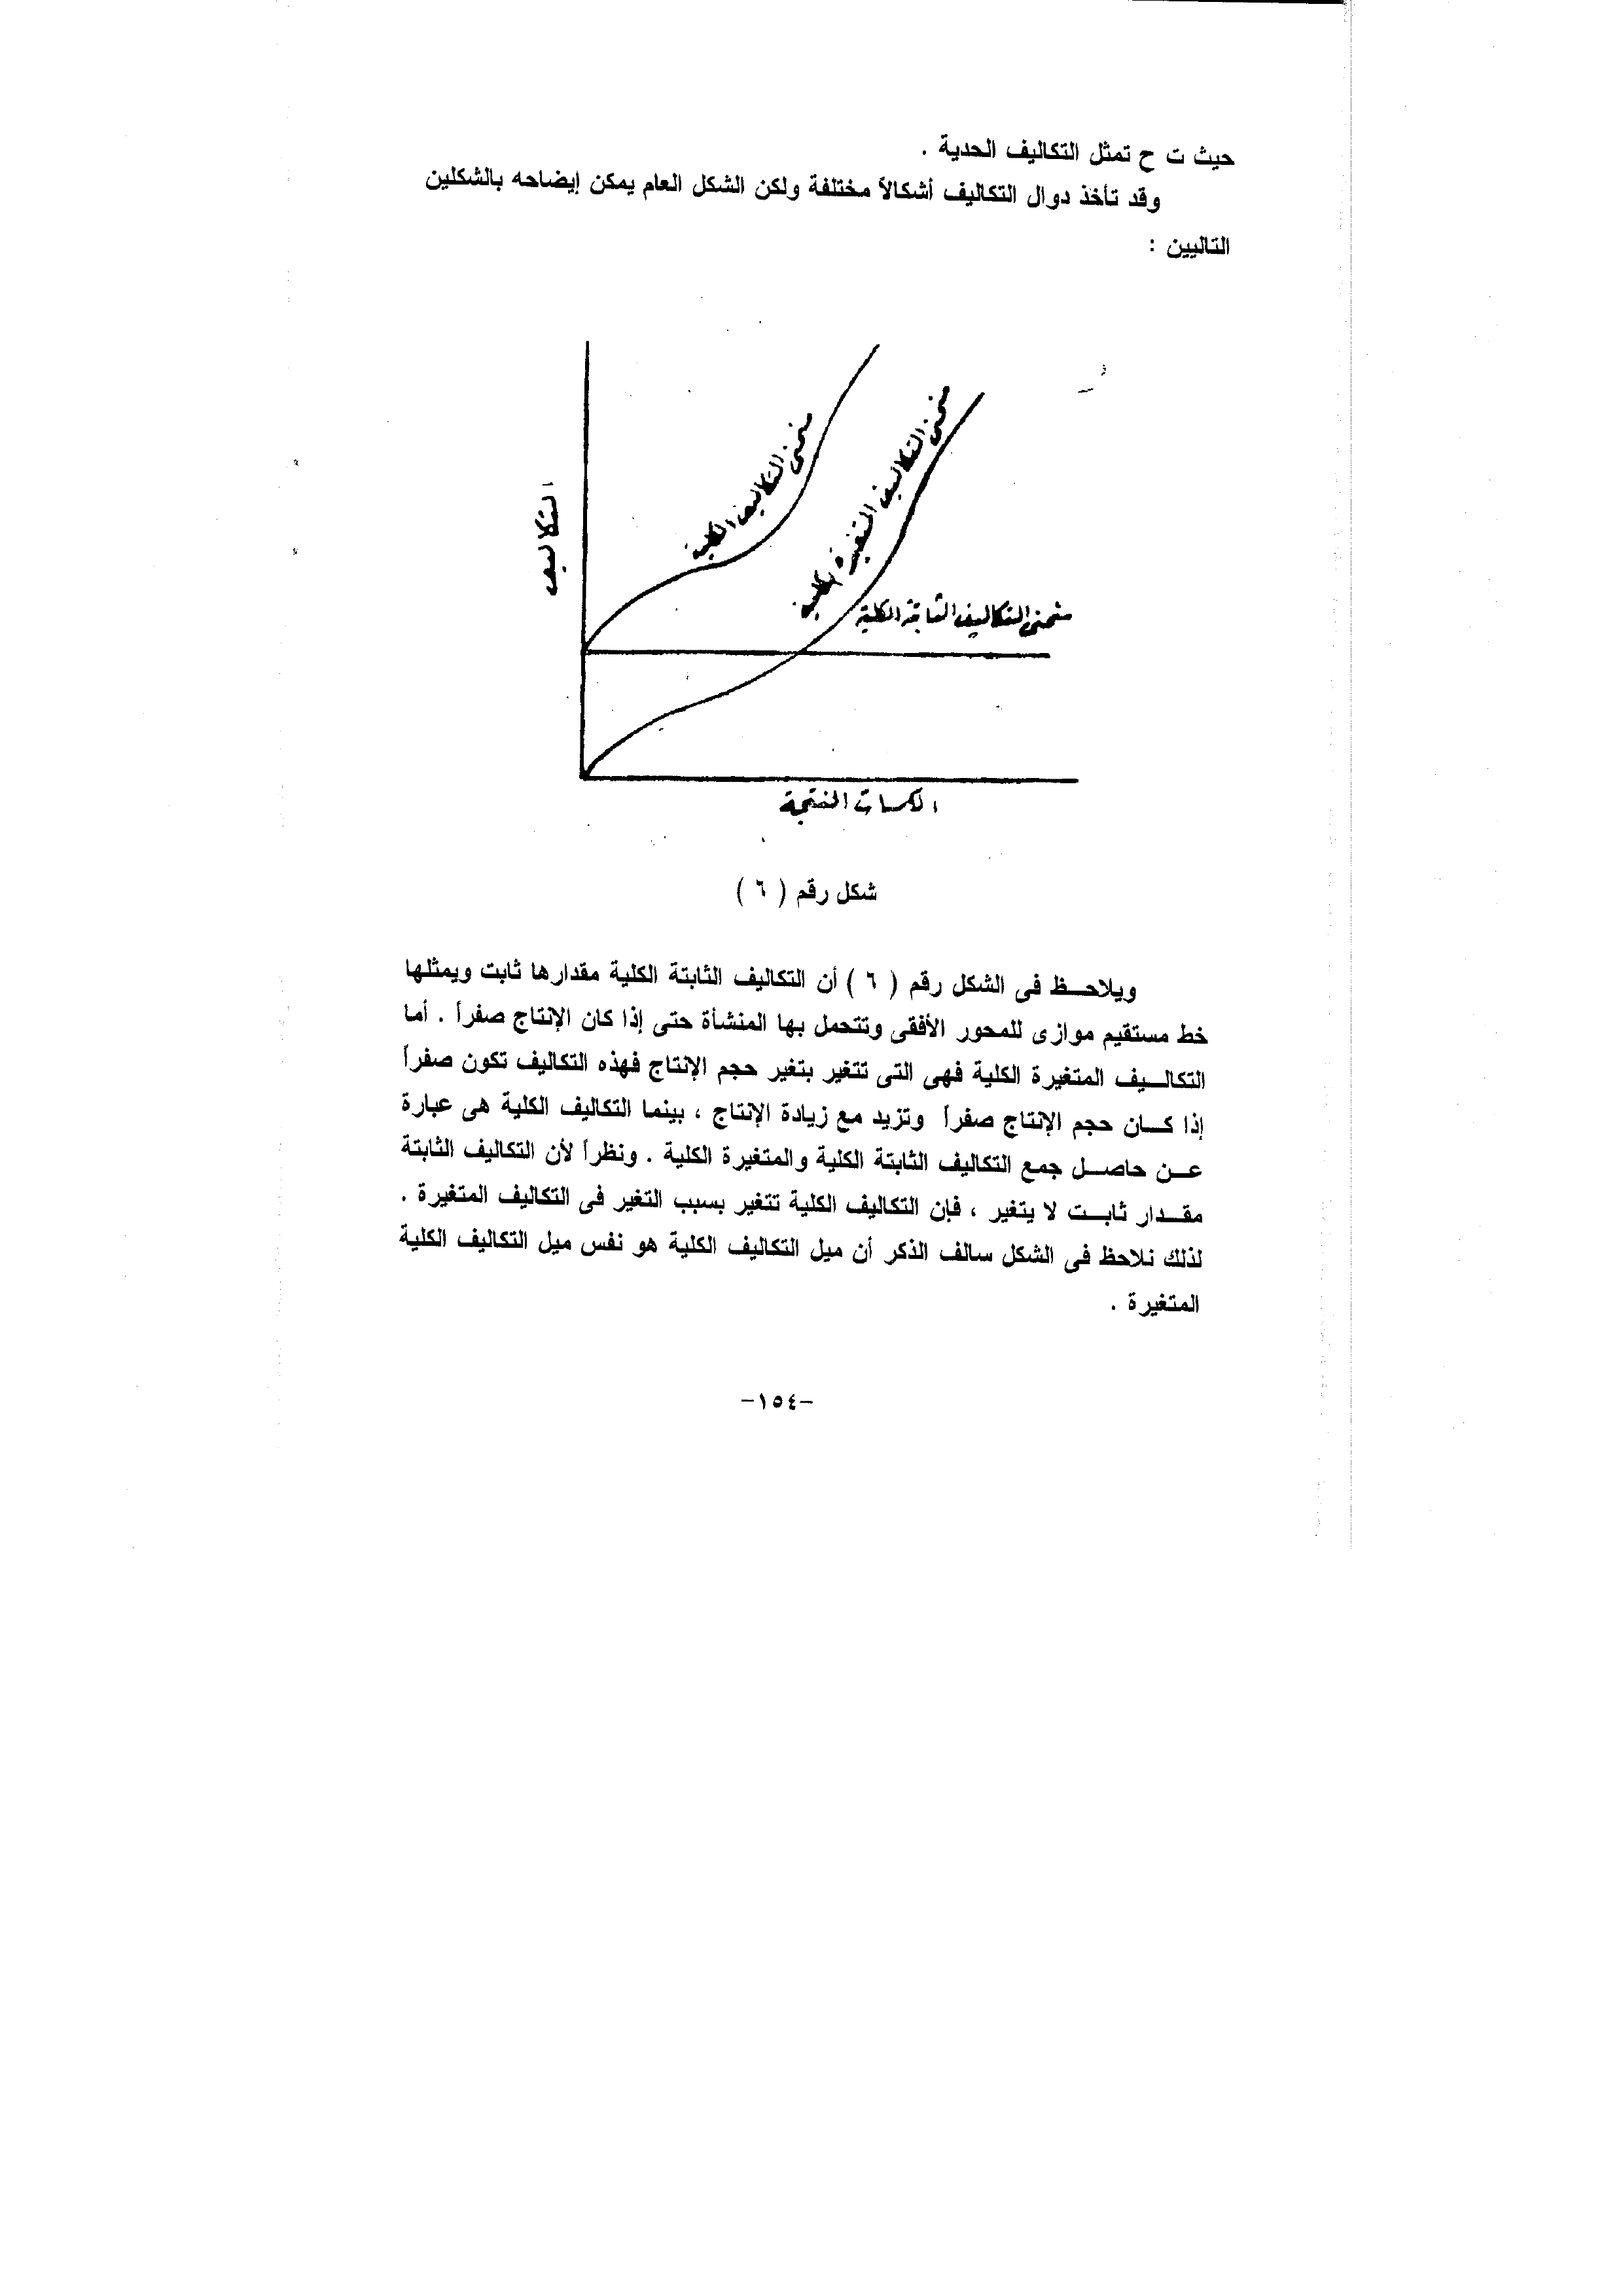 حيث ت ح تمثل التكاليف الحدية .
وقد تأخذ دوال التكاليف أشكالاً مختلفة ولكن الشكل العام يمكن إيضاحه بالشكلين
التاليين :
منحنى التكاليف الكلية
منحنى التكاليف المتغيرة الكلية
منحنى التكاليف الثابتة الكلية
التكاليف
الكميات المنتجة
شكل رقم ( ٦ )
ويلاحظ فى الشكل رقم ( ٦ ) أن التكاليف الثابتة الكلية مقدارها ثابت ويمثلها
خط مستقيم موازى للمحور الأفقى وتتحمل بها المنشأة حتى إذا كان الإنتاج صفراً . أما
التكاليف المتغيرة الكلية فهى التى تتغير بتغير حجم الإنتاج فهذه التكاليف تكون صفراً
إذا كان حجم الإنتاج صفراً وتزيد مع زيادة الإنتاج ، بينما التكاليف الكلية هى عبارة
عن حاصل جمع التكاليف الثابتة الكلية والمتغيرة الكلية . ونظراً لأن التكاليف الثابتة
مقدار ثابت لا يتغير ، فإن التكاليف الكلية تتغير بسبب التغير فى التكاليف المتغيرة .
لذلك نلاحظ فى الشكل سالف الذكر أن ميل التكاليف الكلية هو نفس ميل التكاليف الكلية
المتغيرة .
-١٥٤-